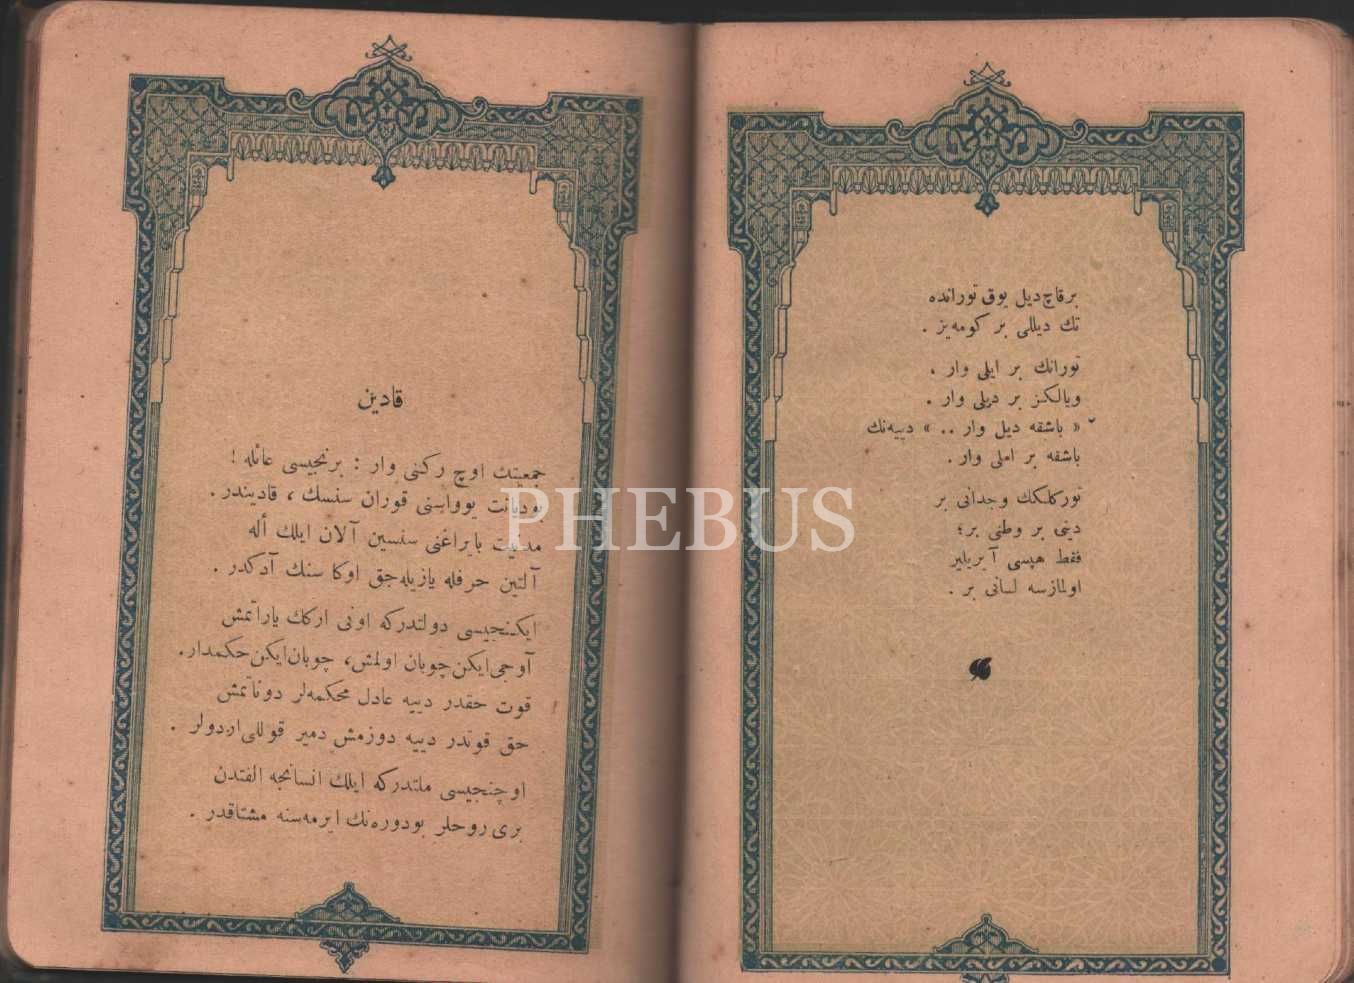 برقاچ دیل یوق تورانده
تك دیللی بر كومه‌یز .
تورانك بر ایلی وار ،
ویالكز بر دیلی وار .
« باشقه دیل وار .. » دییه‌نك
باشقه بر املی وار .
توركلكك وجدانی بر
دینی بر وطنی بر؛
فقط هپسی آیریلیر
اولمازسه لسانی بر .
قادین
جمعیتك اوچ ركنی وار : برنجیسی عائله !
بودیانت یوواسنی قوران سنسك ، قادیندر .
مدنیت بایراغنی سنسین آلان ایلك أله
آلتین حرفله یازیله‌جق اوكا سنك آدكدر .
ایكنجیسی دولتدركه اونی اركك یاراتمش
آوجی‌ایكن‌چوبان اولمش، چوبان‌ایكن‌حكمدار.
قوت حقدر دییه عادل محكمه‌لر دوناتمش
حق قوتدر دییه دوزمش دمیر قوللی‌اردولر .
اوچنجیسی ملتدركه ایلك انسانجه الفتدن
بری روحلر بودوره‌نك ایرمه‌سنه مشتاقدر .
PHEBUS